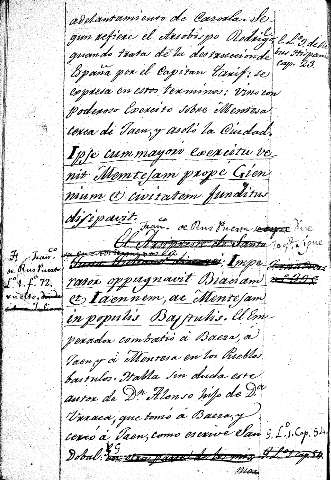 adelantamiento de Cazorla. Se
gun refiere el Arzobispo Rodrigo
quando trata de la destruccion de
España por el Capitan Tarif: se
expresa en estos terminos: vino con
poderoso Exercito sobre Mentesa
cerca de Jaen, y asoló la Ciudad.
Ipse cum mayori exercitu ve
nit Mentesam prope Gien
nium et civitatem funditus
disipavit.
El
Impe
rator oppugnavit Biaciam
et Iaennem, ac Mentesam
in populis Bastulis. El Em
perador combatió á Baeza, á
Jaen, y á Mentesa en los Pueblos
bastulos. Habla sin duda este
autor de Dn. Alonso hijo de Da.
Urraca, que tomó á Baeza, y
cercó á Jaen, como escrive San
dobal.
L.o 3. de
cap. 23.
L.o 1. f.o 72,
vuelto
L.o 1. Cap. 52